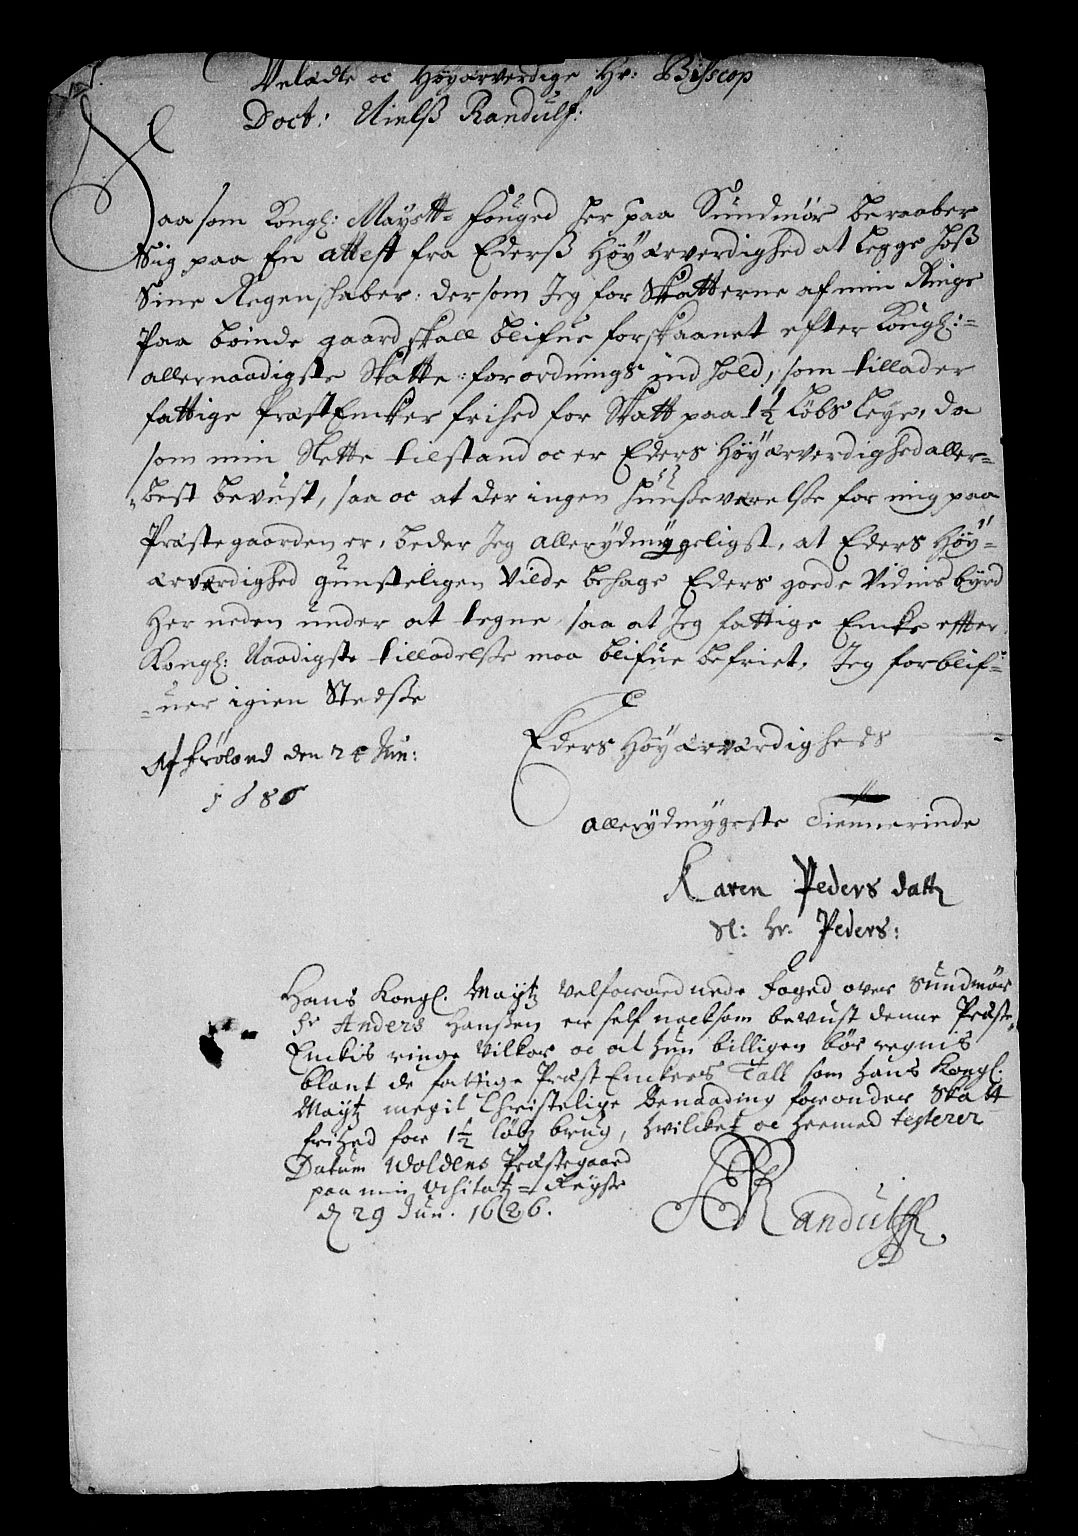 Velædle oc Høyærverdige Hr: Bisscop
Doct: Nielß Randulf:
Saasom Kongl: Maystt= fouged her paa Sundmør beraaber
Sig paa En attest fra Ederß Høyærverdighed at legge hoß
Sine Regenskaber: dersom Jeg for Skatterne af min Ringe
Paa boinde gaard skall blifue forskaanet efter Kongl:=
allernaadigste Skatte: forordnings ind hold, som tillader
fattige Præst Enker frihed for Skatt paa 1½ Løbs leye, da
som min Slette tilstand oc er Eders Høyærverdighed aller=
=best bevust, saa oc at der ingen huusseværelse for mig paa
Præstegaarden er, beder Jeg allerydmygeligst, at Eders Høy=
ærværdighed gunsteligen Vilde behage Eders goede Vidnisbyrd
Her neden under at tegne, saa at Jeg fattige Encke effter
Kongl: Naadigste tilladelsse maa blifue befriet, Jeg forblif=
=uer igien Stedsse
Eders Høyærværdigheds
Af Frøland den 24 Jun:
1686
allerydmygeste Tiennerinde
Karen Peders datt
Sl: hr. Peders:
Hans Kongl. Maytz velforordnede foged over Sundmør
Sr Anders Hanssen er self nocksom bevust denne Præste
Enkis ringe Vilkor oc at hun billigen bör regnis
blant de fattige Præst Enkers Tall som Hans Kongl:
Maytz megit Christelige Benaading forunder Skatt
frihed for 1½ löbz brug, hvilket oc hermed testerer
Datum Woldens Præstegaard
paa min Visitatz=Reysse
d 29 Jun. 1686.
Randulff